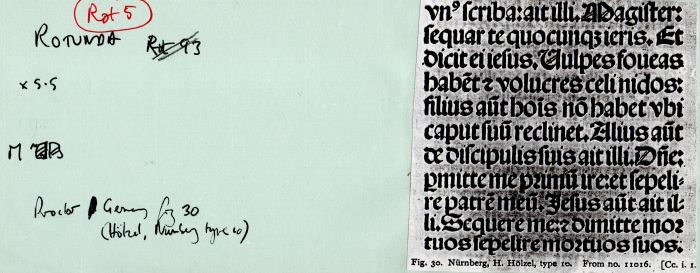 Rot 5
ROTUNDA
Rot 93
x 5.5
M
Proctor Germany fig 30
(Hölzel, Nürnberg type 10)
vnꝰ scriba: ait illi. Magister:
sequar te quocunqꝫ ieris. Et
dicit ei iesus. Vulpes foueas
habēt ⁊ volucres celi nidos:
filius aūt hoīs nō habet vbi
caput suū reclinet. Alius aūt
de discipulis suis ait illi. Dñe:
ꝑmitte me primū ire: et sepeli-
re patrē meū. Jesus aūt ait il-
li. Sequere me: ⁊ dimitte mor
tuos sepelire mortuos suos.
Fig. 30. Nürnberg, H. Hölzel, type 10. From no. 11016. [Cc. i. 1.